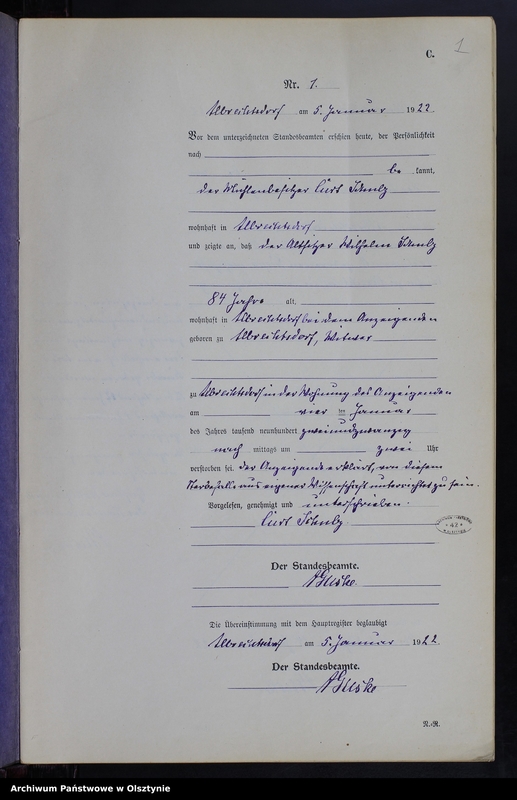 1
C.
Nr. 1.
Albrechtsdorf am 5. Januar 1922.
Vor dem unterzeichneten Standesbeamten erschien heute, der Persönlichkeit
nach
be kannt,
der Mühlenbesitzer Curt Schulz
wohnhaft in Albrechtsdorf
und zeigte an, daß der Altsitzer Wilhelm Schulz
84 Jahre alt,
wohnhaft in Albrechtsdorf bei dem Anzeigenden
geboren zu Albrechtsdorf, Witwer
zu Albrechtsdorf in der Wohnung des Anzeigenden
am vier ten Januar
des Jahres tausend neunhundert zweiundzwanzig
nach mittags um zwei Uhr
verstorben sei. Der Anzeigende erklärt, von diesem
Sterbefalle aus eigener Wissenschaft unterrichtet zu sein.
Vorgelesen, genehmigt und unterschrieben.
Curt Schulz
42
Der Standesbeamte.
Die Übereinstimmung mit dem Hauptregister beglaubigt
Albrechtsdorf am 5. Januar 1922
Der Standesbeamte.
N.-R.
Archiwum Państwowe w Olsztynie